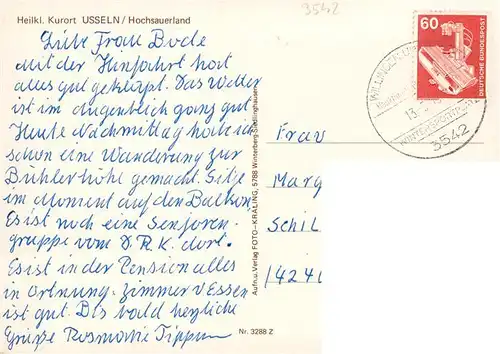 3542
Heilkl. Kurort USSELN / Hochsauerland
Liebe Frau Bode
mit der Hinfahrt hat
alles gut geklapt. Das Wetter
ist im Augenblich ganz gut
Heute Nachmittag habe ich
schon eine Wanderung zur
Bühlerhöhe gemacht. Sitze
im Moment auf den Balkon,
Es ist noch eine Senjoren-
gruppe vom D.R.K. dort.
Es ist in der Pension alles
in Ortnung. Zimmer u Essen
ist gut. Bis bald herzliche
Grüße Rosmarie Tippm
Aufn. u. Verlag FOTO-KRALING, 5788 Winterberg-Siedlinghausen
Nr. 3288 Z
60
DEUTSCHE BUNDESPOST
WILLINGEN
13.
WINTERSPORTPLATZ
3542
Frau
Marg
Schil
1424